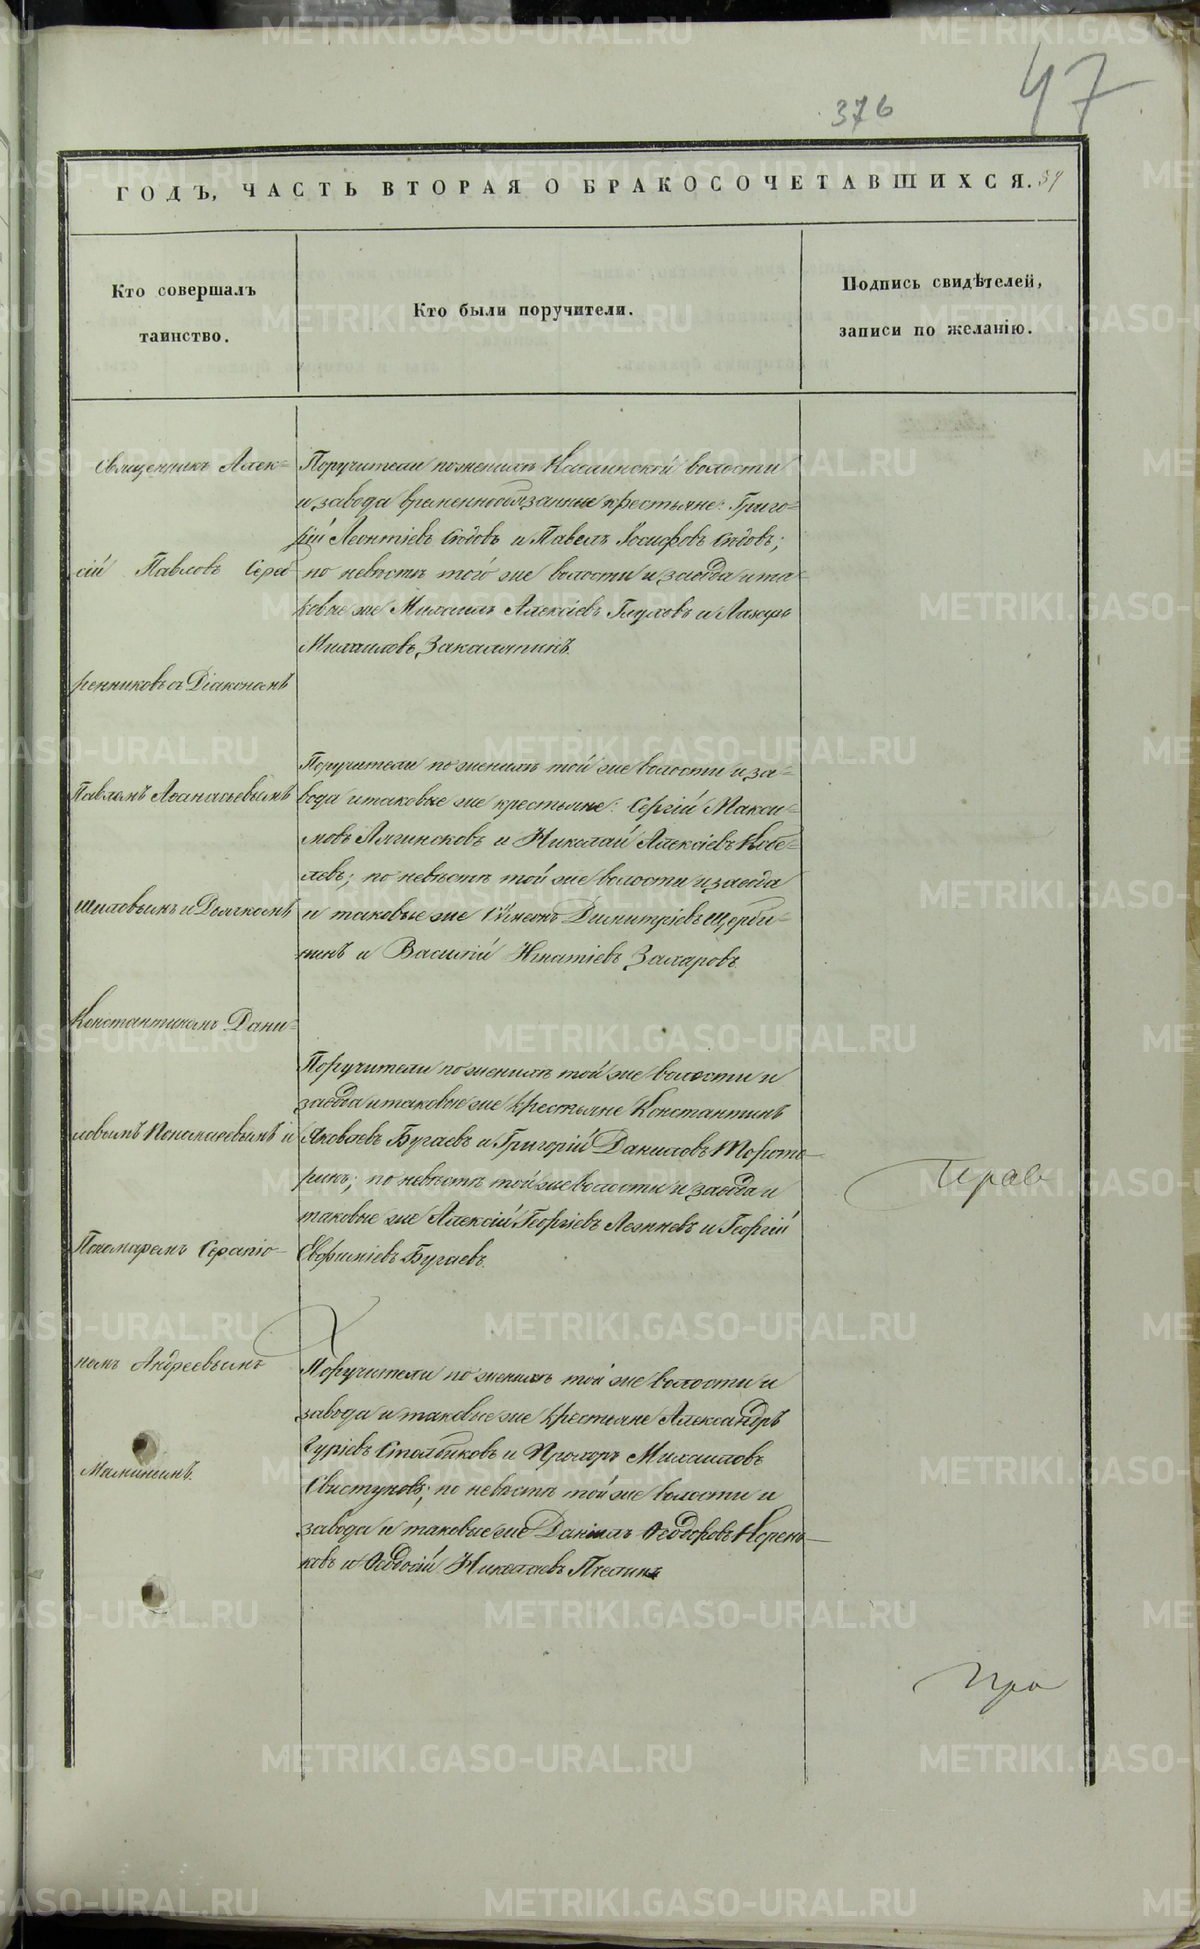 47
376
ГОДЪ, ЧАСТЬ ВТОРАЯ О БРАКОСОЧЕТАВШИХСЯ.
Кто совершалъ
таинство.
Кто были поручители.
Подпись свидѣтелей,
записи по желанію.
Священникъ Алек-
сій Павловъ Сереб-
ренниковъ съ Діакономъ
Павломъ Аѳанасьевымъ
Шиловымъ и Дьячкомъ
Константиномъ Дани-
ловымъ Пономаревымъ и
Пономаремъ Серапіо-
номъ Андреевымъ
Мининымъ.
Поручители по женихѣ Каслинской волости
и завода временнообязанные крестьяне: Григо-
рій Леонтіевъ Сѣдовъ и Павелъ Іосифовъ Сѣдовъ;
по невѣстѣ той же волости и завода и та-
ковые же Михаилъ Алексіевъ Глуховъ и Лазарь
Михаиловъ Закаляпинъ.
Поручители по женихѣ той же волости и за-
вода и таковые же крестьяне: Сергій Макси-
мовъ и Николай Алексіевъ Кобе-
левъ; по невѣстѣ той же волости и завода
и таковые же Сѵмеонъ Димитріевъ Щерби-
нинъ и Василій Игнатіевъ Захаровъ.
Поручители по женихѣ той же волости и
завода и таковые же крестьяне Константинъ
Яковлевъ Бугаевъ и Григорій Даниловъ
по невѣстѣ той же волости и завода и
таковые же Алексій Георгіевъ Лежневъ и Георгій
Евфиміевъ Бугаевъ.
Поручители по женихѣ той же волости и
завода и таковые же крестьяне Александръ
Гуріевъ Столбиковъ и Прохоръ Михаиловъ
Свистуновъ; по невѣстѣ той же волости и
завода и таковые же Даніилъ Ѳеодоровъ Корень-
ковъ и Ѳеодосій Николаевъ
METRIKI.GASO-URAL.RU